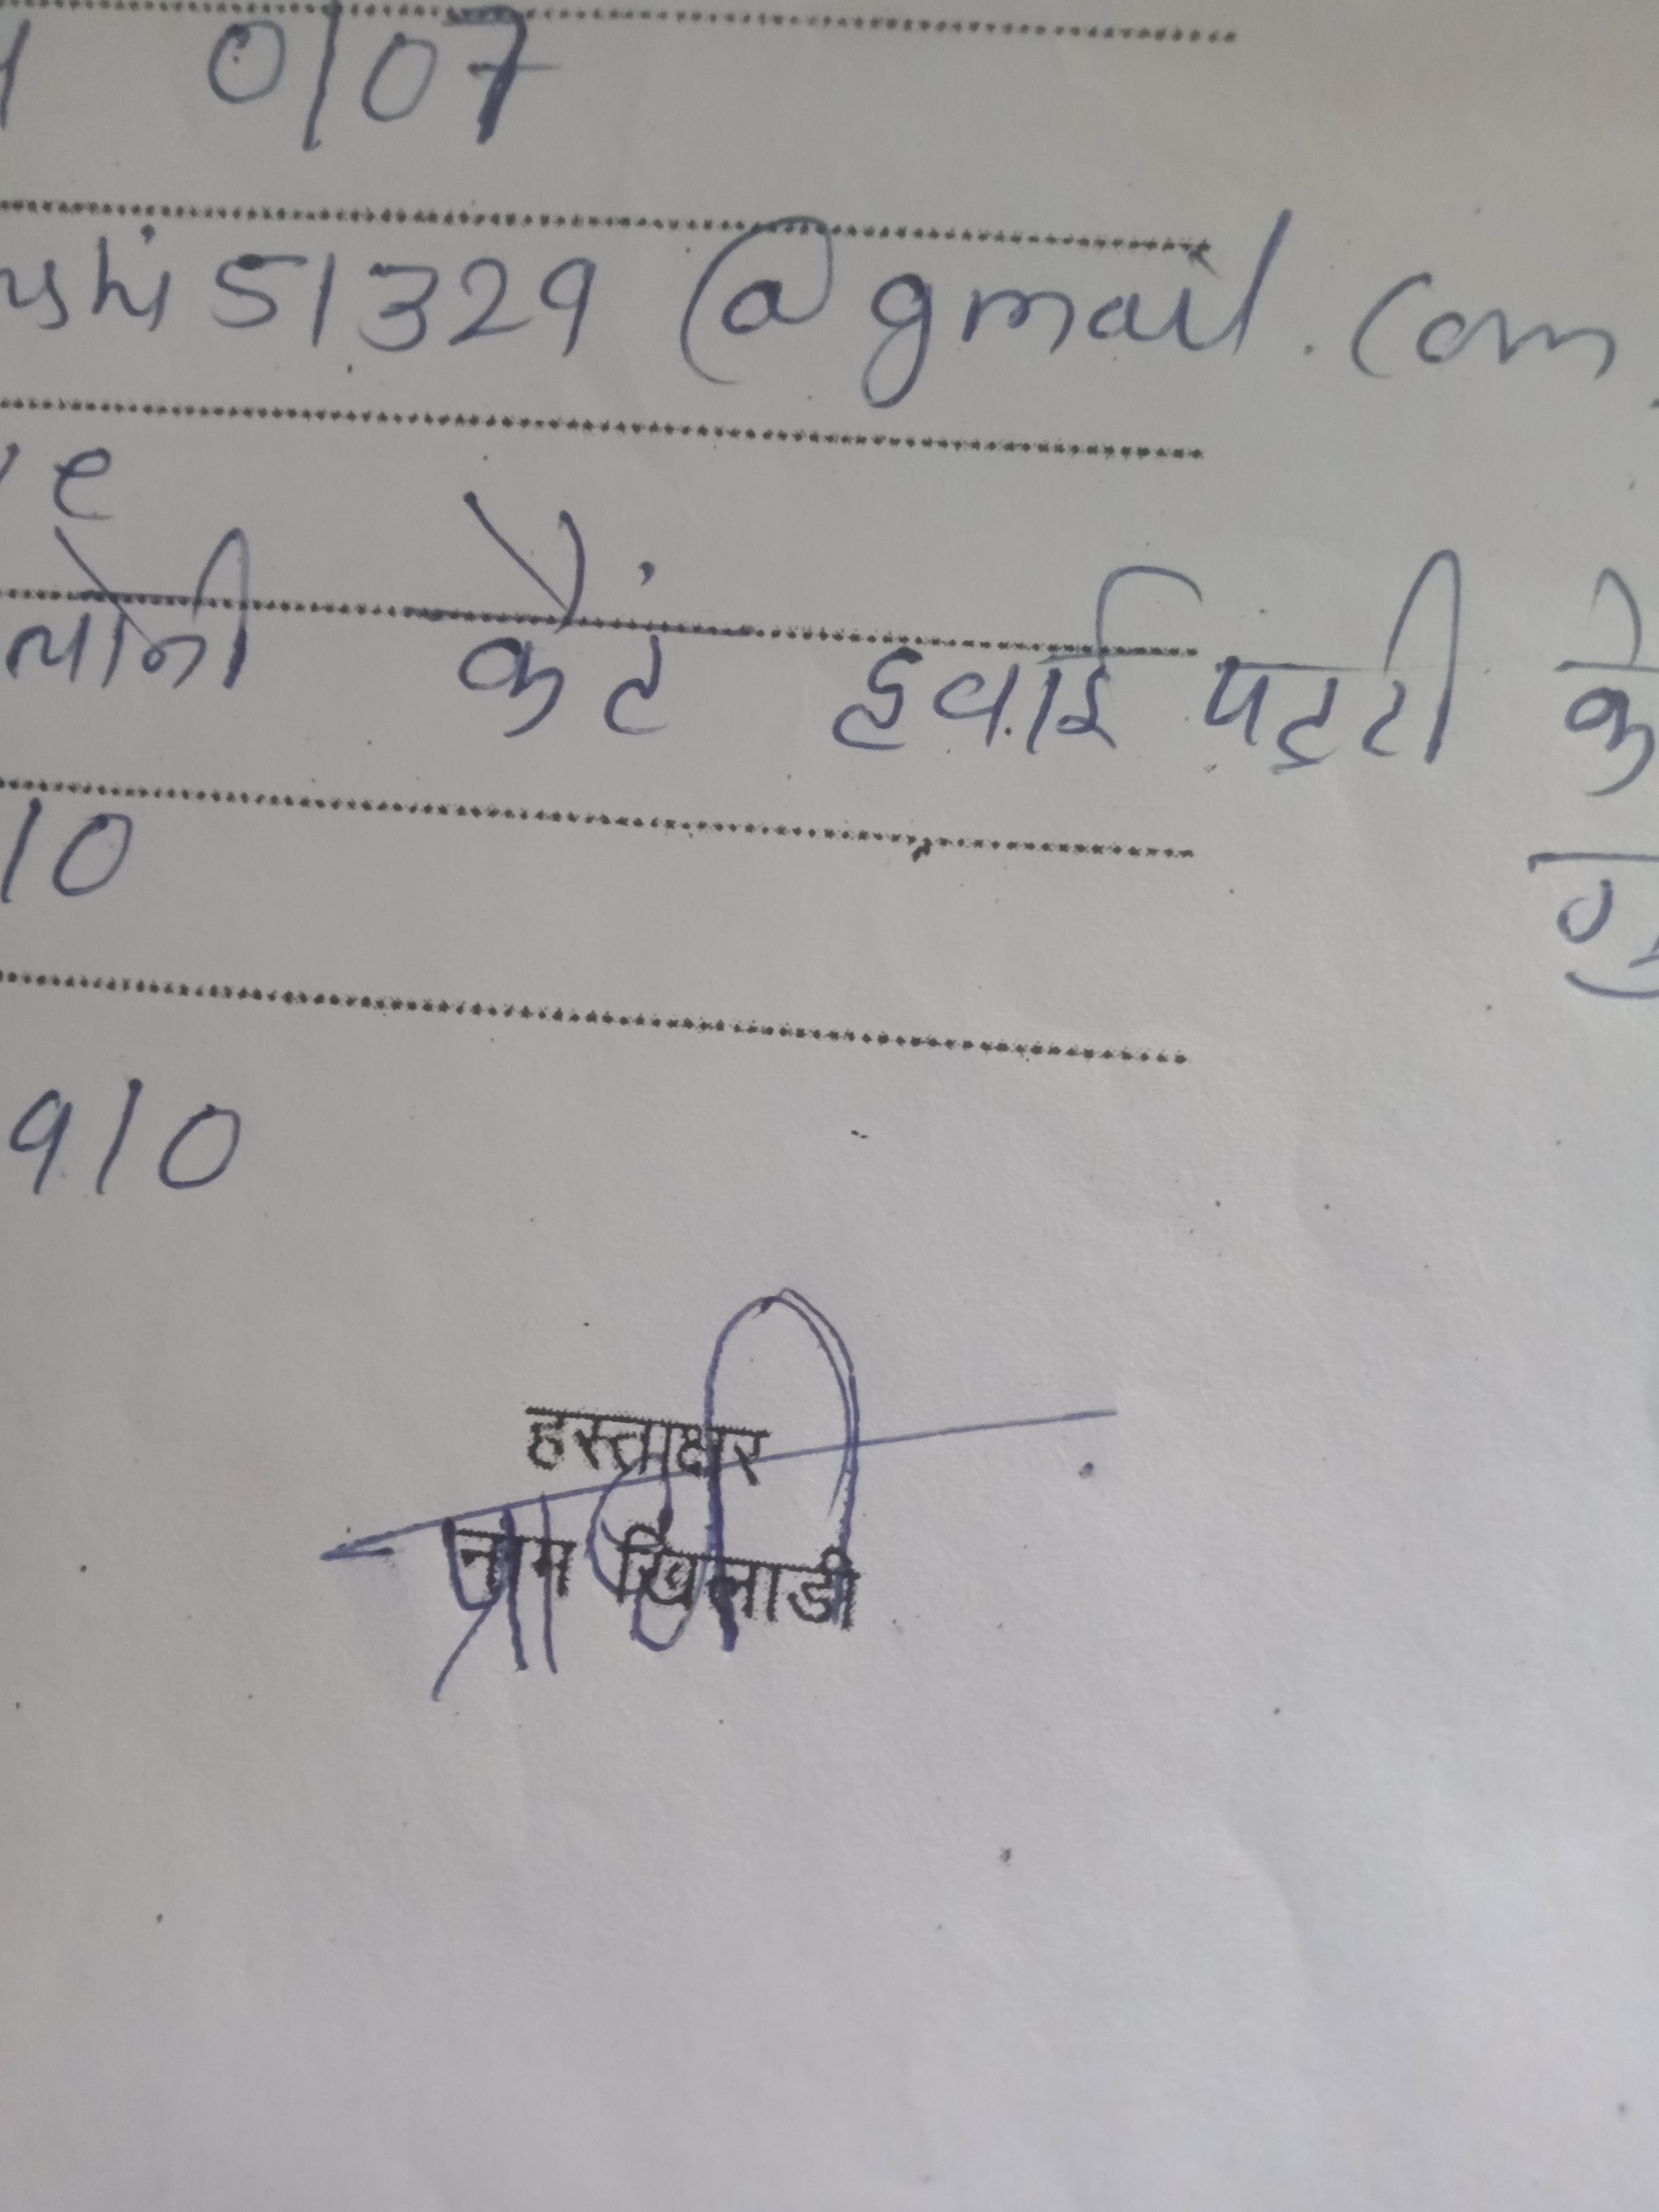 0107
ushi51329@gmail.com
e
लोनी कैंट हवाई पट्टी के
10
910
हस्ताक्षर
नाम खिलाडी